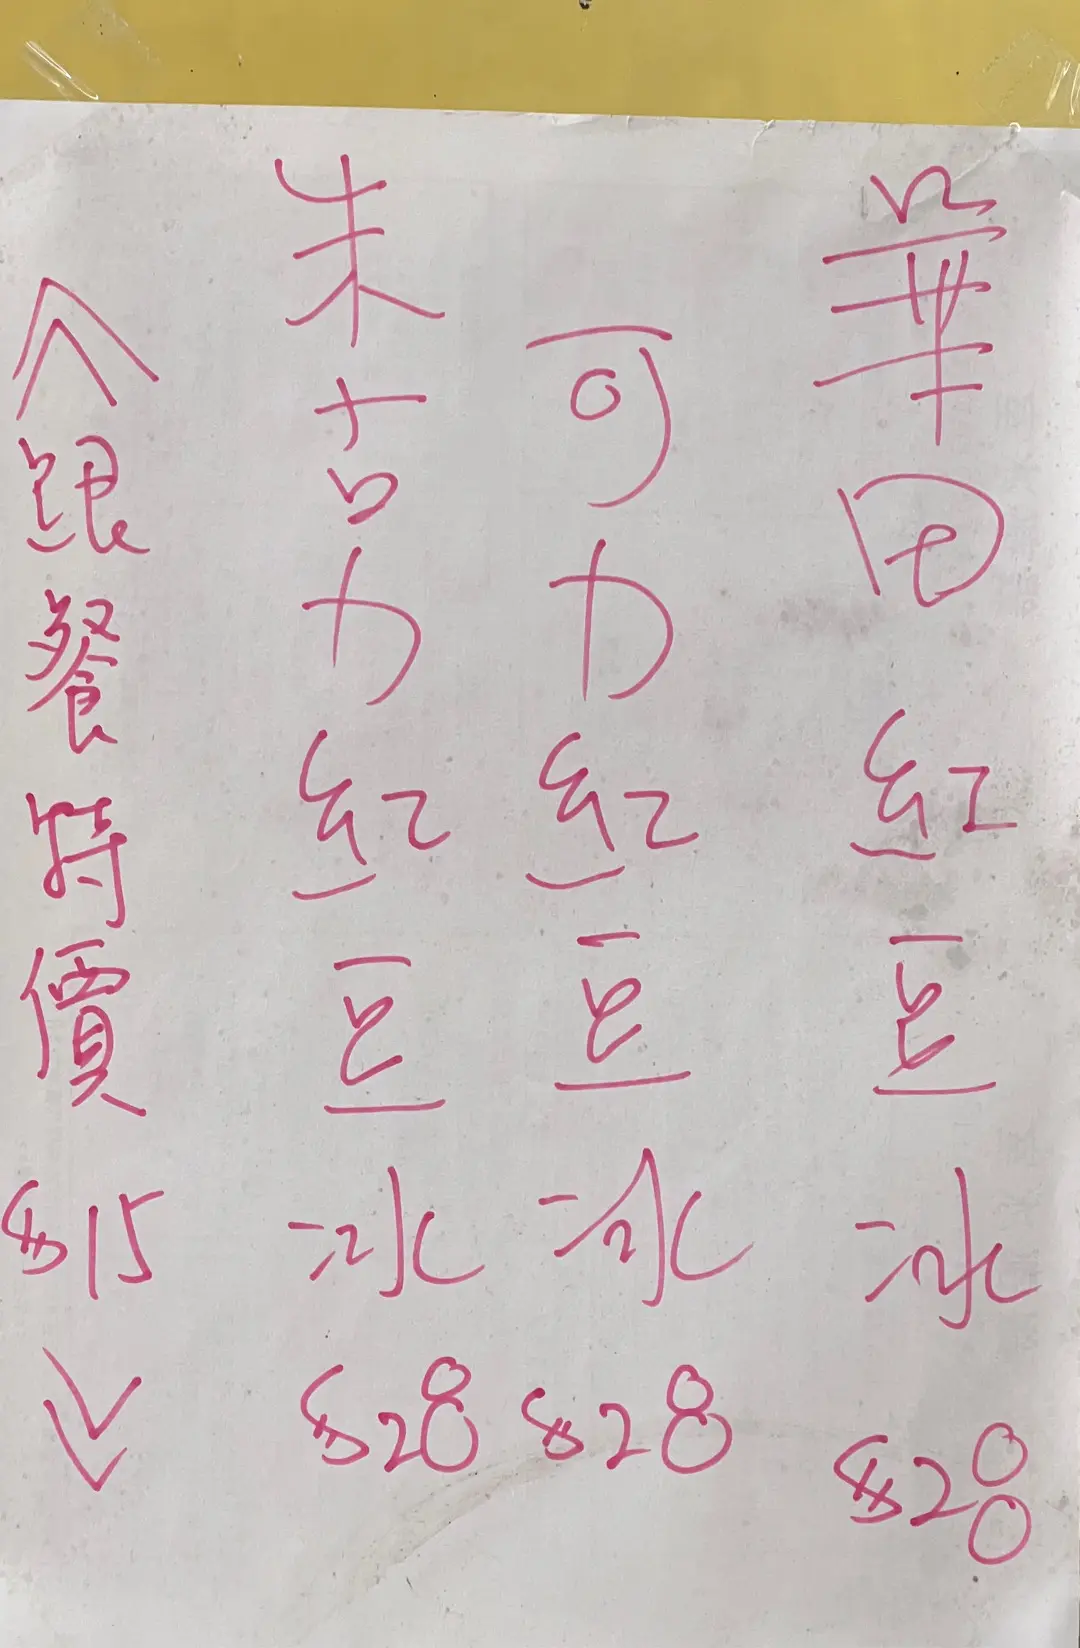 華田紅豆冰$28
可力紅豆冰$28
朱古力紅豆冰$28
《跟餐特價$15》